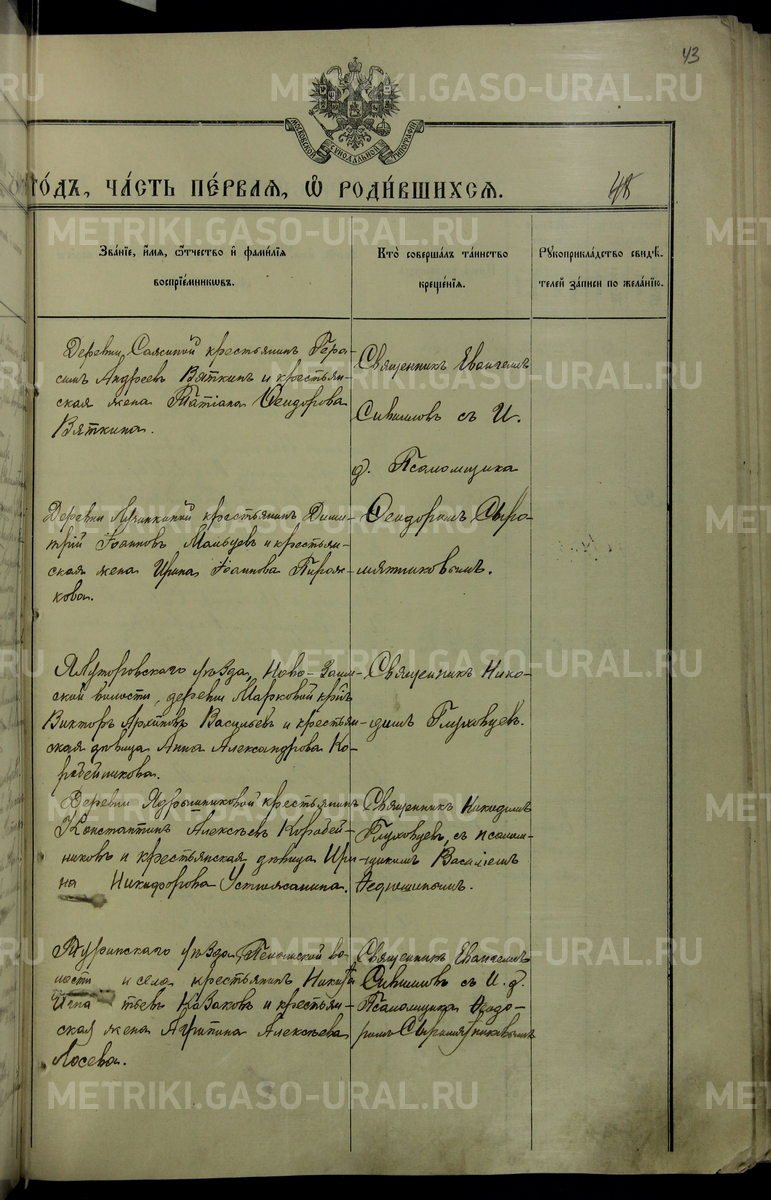 43
МОСКОВСКОЙ СѴНОДАЛЬНОЙ ТИПОГРАФІИ
го́дъ, ча́сть пе́рвая, ѡ роди́вшихся.
48
Зва́нїе, и́мя, ѻ҆́тчество и҆ фами́лїя
воспрїе́мникѡвъ.
Кто̀ соверша́лъ та́инство
креще́нїя.
Рꙋкоприкла́дство свидѣ́-
телей за́писи по жела́нїю.
Деревни Саясиной крестьянинъ Гера-
симъ Андреевъ Вяткинъ и крестьян-
ская жена Татіана Ѳеодорова
Вяткина.
Священникъ Евангелъ
съ И.
д. Псаломщика
Ѳеодоромъ Сыро-
мятниковымъ.
Деревни крестьянинъ Дими-
трій Іоанновъ Мальцевъ и крестьян-
ская жена Ирина Іоаннова Пирож-
кова.
Ялуторовскаго уѣзда, Ново-Заим-
ской волости, деревни Марковой кр-нъ
Викторъ Архиповъ Васильевъ и крестьян-
ская дѣвица Анна Александрова Ко-
робейникова.
Священникъ Нико-
димъ Глуховцев.
Деревни Ядрышниковой крестьянинъ
Константинъ Алексѣевъ Коробей-
никовъ и крестьянская дѣвица Ири-
на Никифорова Устюжанина.
Священникъ Никодимъ
Глуховцев, съ псалом-
щикомъ Василіемъ
Ѳедюшинымъ.
Туринскаго уѣзда, во-
лости и села крестьянинъ Никита
Игнатьевъ Казаковъ и крестьян-
ская жена Агрипина Алексѣева
Лосева.
Священникъ Евангелъ
съ И. д.
Псаломщика Ѳеодо-
ромъ Сыромятниковымъ
METRIKI.GASO-URAL.RU